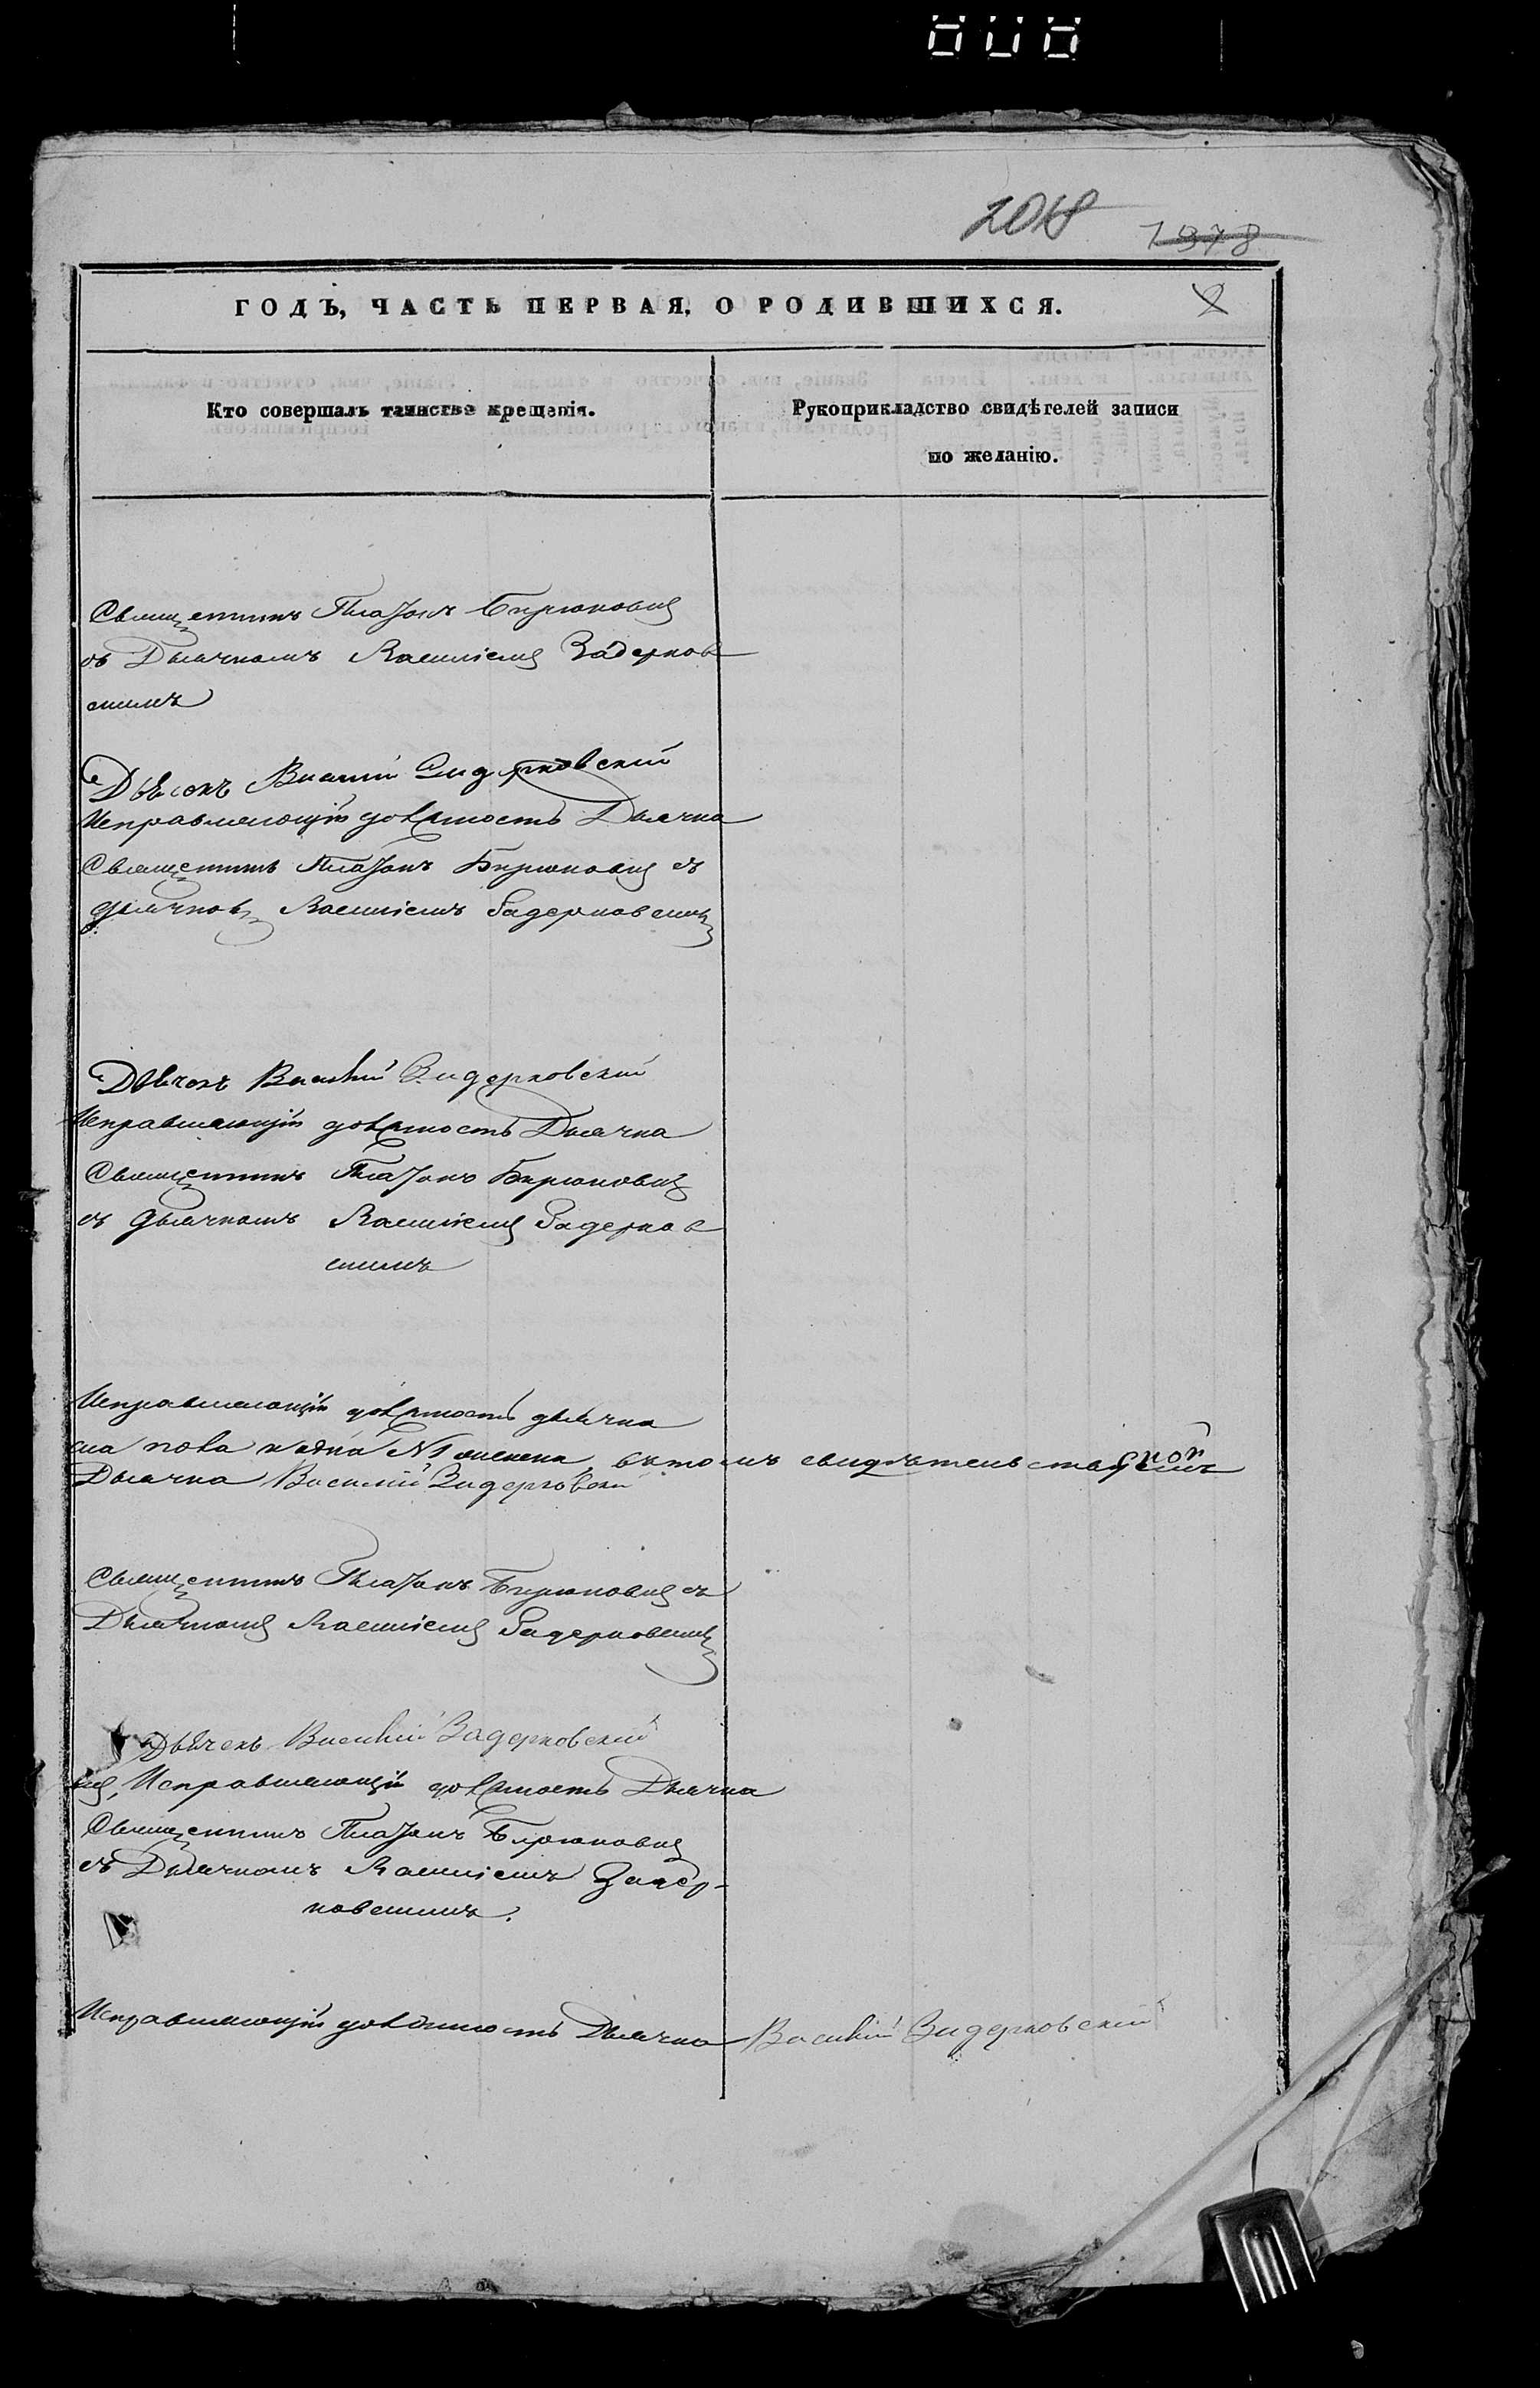 2018
1978
ГОДЪ, ЧАСТЬ ПЕРВАЯ, О РОДИВШИХСЯ.
Кто совершалъ таинство крещенія.
Рукоприкладство свидѣтелей записи
по желанію.
Священникъ Платонъ Бирюковичъ
съ Дьячкомъ Василіемъ Задерков
скимъ
Дьячокъ Василий Задерковский
Исправляющій должность Дьячка
Священникъ Платонъ Бирюковичъ съ
дьячкомъ Василіемъ Задерковскимъ
Дьячокъ Василий Задерковский
Исправляющій должность Дьячка
Священникъ Платонъ Бирюковичъ
съ дьячкомъ Василіемъ Задерков
скимъ
Исправляющій должность дьячка
въ томъ свидѣтельствуемъ
Дьячка Василий Задерковски
Священникъ Платонъ Бирюковичъ съ
Дьячкомъ Василіемъ Задерковскимъ
Дьячекъ Василий Задерковский
Исправляющій должность Дьячка
Священникъ Платонъ Бирюковичъ
съ Дьячкомъ Василіемъ Задер-
ковскимъ.
Исправляющій должность Дьячка Василий Задерковский